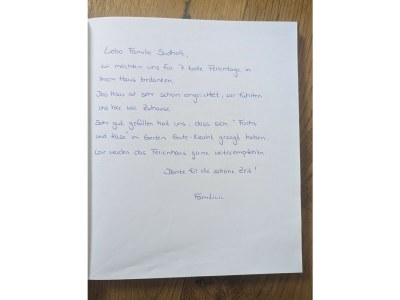 Liebe Familie Sudholt,
wir möchten uns für 7 tolle Ferientage in
Ihrem Haus bedanken.
Das Haus ist sehr schön eingerichtet, wir fühlten
uns hier wie Zuhause.
Sehr gut gefallen hat uns, dass sich "Fuchs
und Hase" im Garten Gute-Nacht gesagt haben.
Wir werden das Ferienhaus gerne weiterempfehlen.
Danke für die schöne Zeit!
Familie